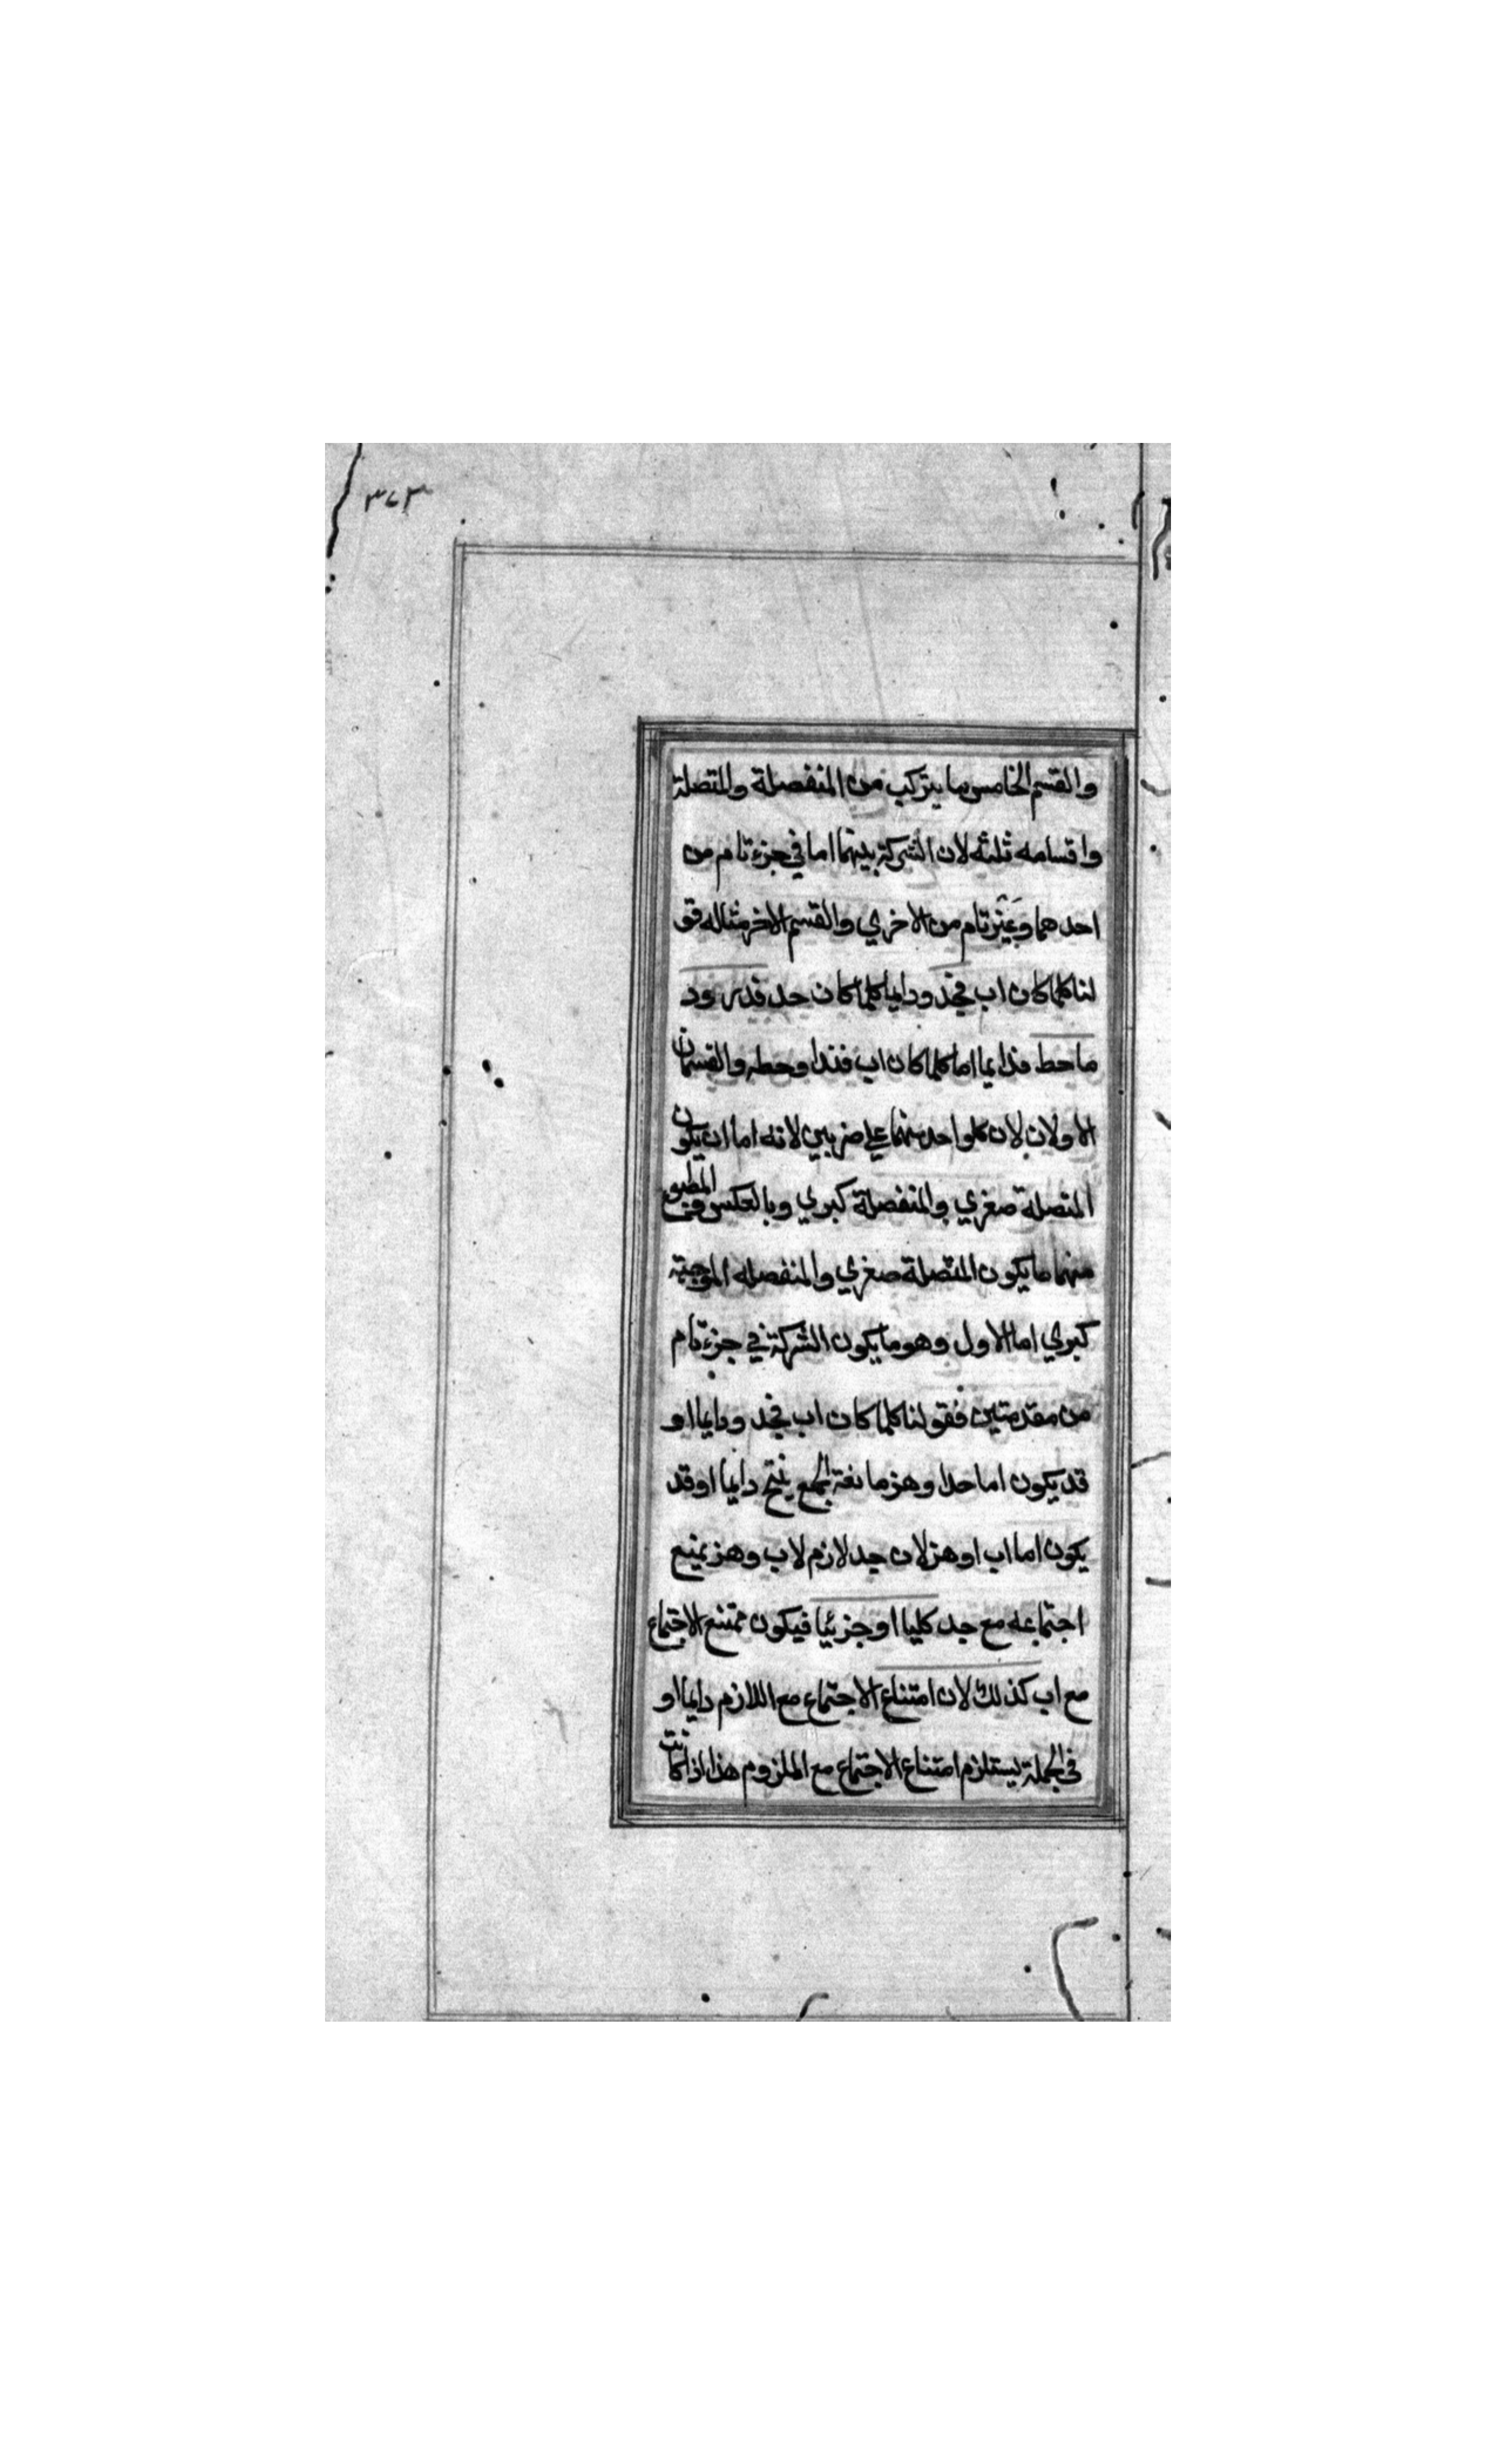 ٣٧٣
والقسم الخامس ما يتركب من المنفصلة والمتصلة
واقسامه ثلثه لان الشركة بينهما اما في جزء تام من
احدهما وغير تام من الاخري والقسم الاخر مثاله قو
لنا كلما كان اب فجد ودايما كلما كان جد
ما حط فدايما اما كلما كان اب وحط والقسمان
الاولان لان كلواحد منهما علي ضربين لانه اما ان يكون
المتصلة صغري والمنفصلة كبري وبالعكس المطبوع
منهما ما يكون المتصلة صغري والمنفصله الموجبة
كبري اما الاول وهو ما يكون الشركة في جزء تام
من مقدمتين فقولنا كلما كان اب فجد ودايما او
قد يكون اما جدا وهز مانعة الجمع ينتج دايما او قد
يكون اما اب او هز لان جد لازم لاب وهز يمنع
اجتماعه مع جد كليا او جزئيا فيكون ممتنع الاجتماع
مع اب كذلك لان امتناع الاجتماع مع اللازم دايما او
في الجملة يستلزم امتناع الاجتماع مع الملزوم هذا اذا كانت